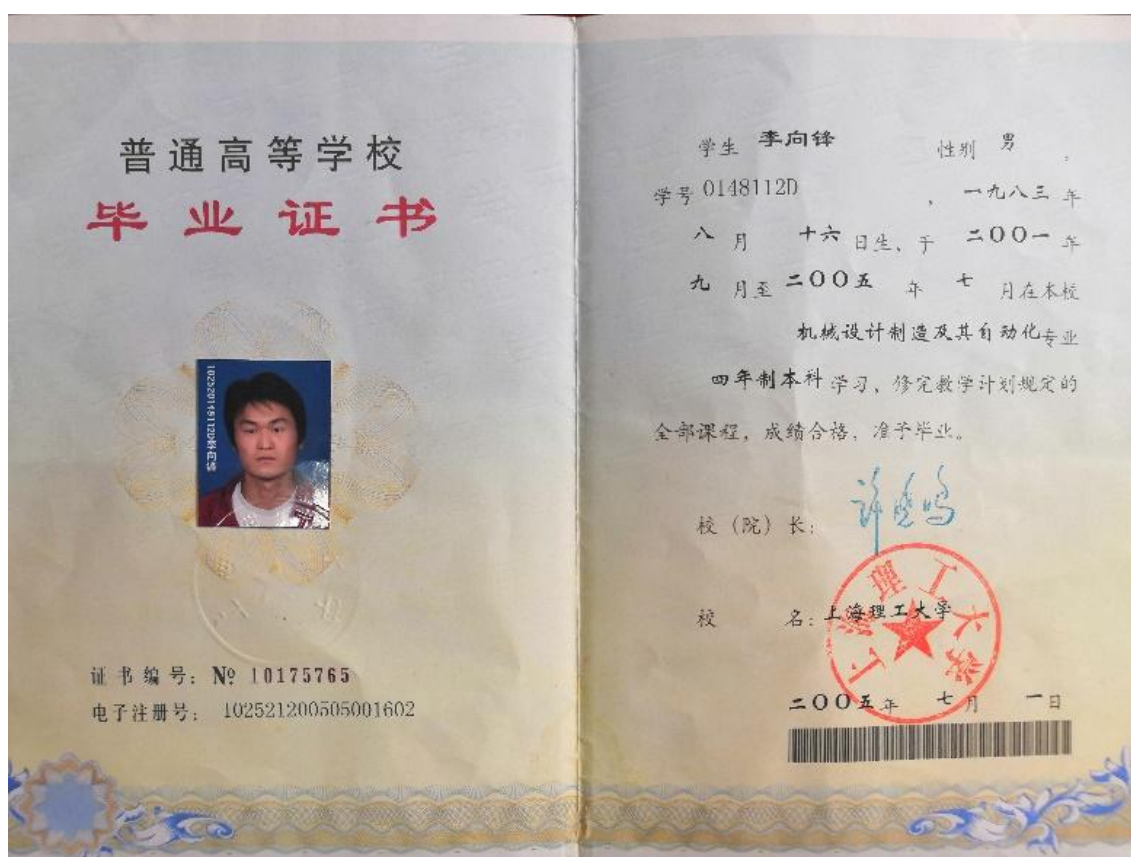 普通高等学校
毕业证书
102520148112D李向锋
证书编号：№ 10175765
电子注册号：102521200505001602
学生 李向锋 ，性别 男 ，
学号 0148112D ，一九八三 年
八 月 十六 日生、于 二〇〇一 年
九 月至 二〇〇五 年 七 月在本校
机械设计制造及其自动化专业
四年制本科 学习，修完教学计划规定的
全部课程，成绩合格，准予毕业。
校（院）长：
校 名：上海理工大学
上海理工大学
二〇〇五年 七 月 一日